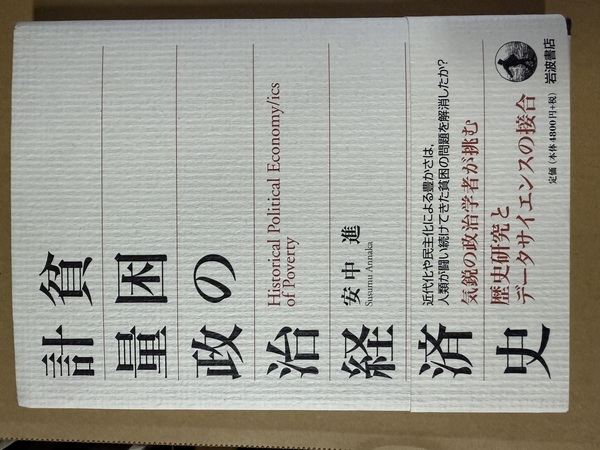 貧困の
計量政治経済史
Historical Political Economy/ics
of Poverty
安中 進
Susumu Annaka
近代化や民主化による豊かさは、
人類が闘い続けてきた貧困の問題を解消したか?
気鋭の政治学者が挑む
歴史研究と
データサイエンスの接合
岩波書店
定価(本体4800円+税)